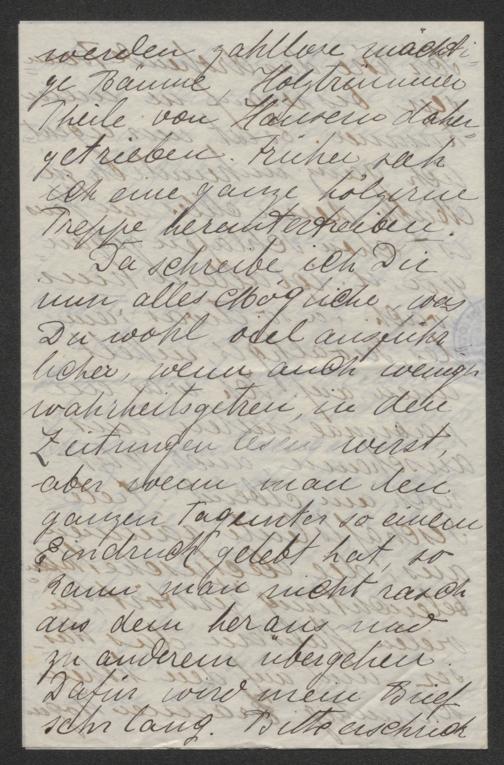 werden zahllose mächti-
ge Bäume, Holztrümmer
Theile von Häusern daher
getrieben. Früher sah
ich eine ganze hölzerne
Treppe heruntertreiben.
Da schreibe ich Dir
nun alles Mögliche, was
Du wohl viel ausführ
licher, wenn auch wenigr
wahrheitsgetreu, in den
Zeitungen lesen wirst,
aber wenn man den
ganzen Tag unter so einem
Eindruck gelebt hat, so
kann man nicht rasch
aus dem heraus und
zu anderem übergehen.
Dafür wird mein Brief
sehr lang. Bitte